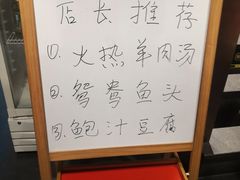 店长推荐
①.火热羊肉汤
②.鸳鸯鱼头
③.鲍汁豆腐